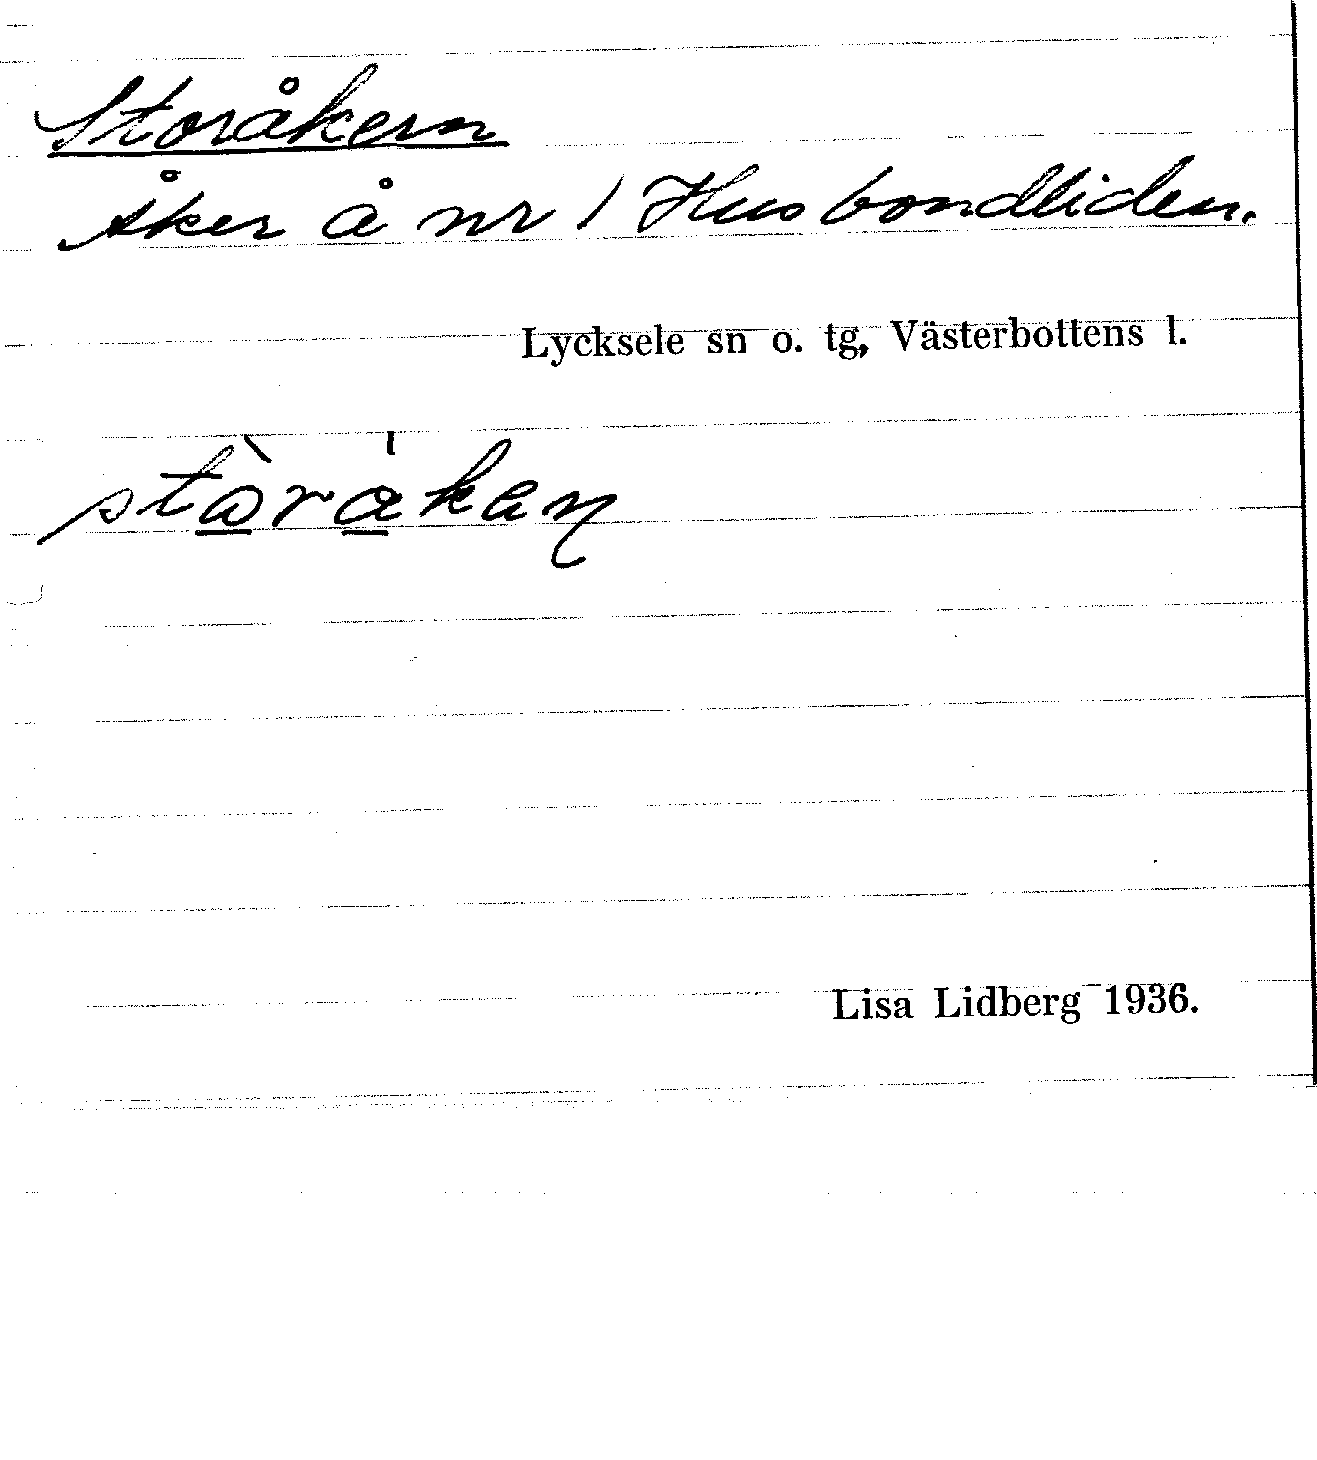 Storåkern
Åker å nr 1 Husbondliden.
Lycksele sn o. tg, Västerbottens l.
Lisa Lidberg 1936.